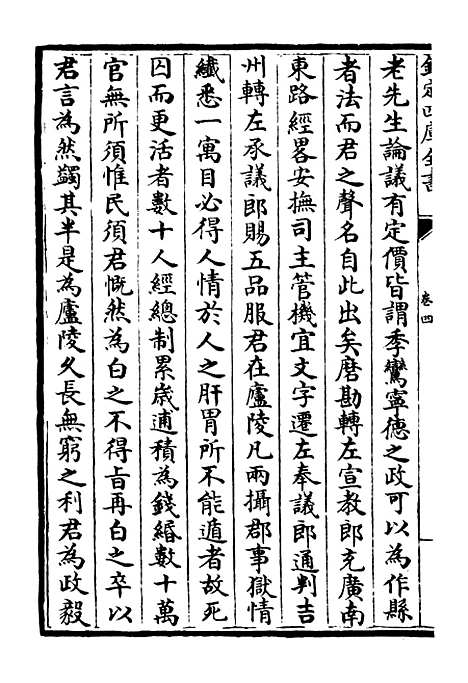 欽定四庫全書
卷四
老先生論議有定價皆謂季鸞寧德之政可以為作縣
者法而君之聲名自此出矣磨勘轉左宣教郎充廣南
東路經畧安撫司主管機宜文字遷左奉議郎通判吉
州轉左承議郎賜五品服君在廬陵凡兩攝郡事獄情
纎悉一寓目必得人情於人之肝胃所不能遁者故死
囚而更活者數十人經總制累歲逋積為錢緡數十萬
官無所須惟民須君慨然為白之不得㫖再白之卒以
君言為然蠲其半是為廬陵久長無窮之利君為政毅